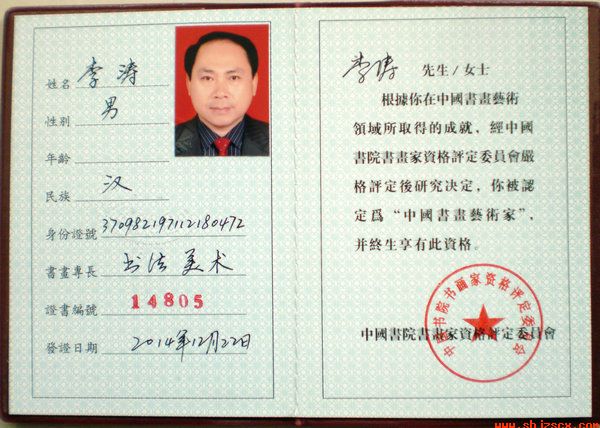 姓名 李涛
性別 男
年齡
民族 汉
身份證號 370982197112180472
書畫專長 书法 美术
證書編號 14805
發證日期 2014年12月22日
李涛 先生/女士
根據你在中國書畫藝術
領域所取得的成就，經中國
書院書畫家資格評定委員會嚴
格評定後研究決定，你被認
定爲“中國書畫藝術家”，
并終生享有此資格。
中國書院書畫家資格評定委員會
中国书院书画家资格评定委员会